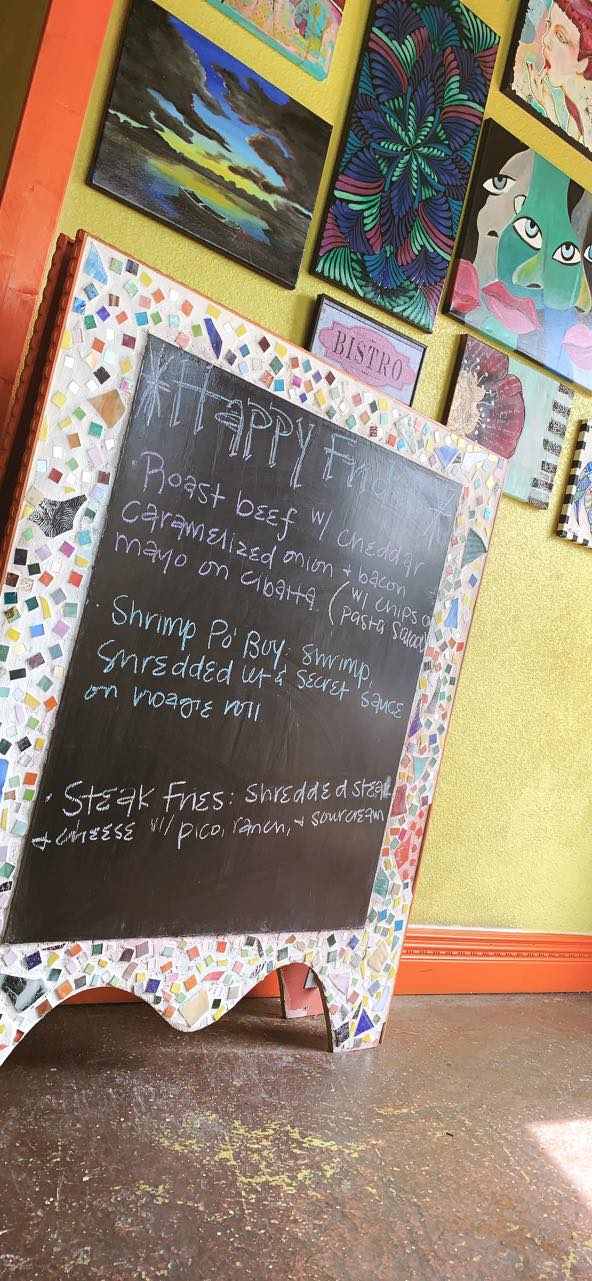 BISTRO
*HAPPY Friday*
· Roast beef w/ cheddar
caramelized onion + bacon
mayo on cibatta (w/ chips or
pasta salad)
· Shrimp Po' Boy: shrimp,
shredded let & secret sauce
on hoagie roll
· Steak Fries: shredded steak
+ cheese w/ pico, ranch, + sourcream